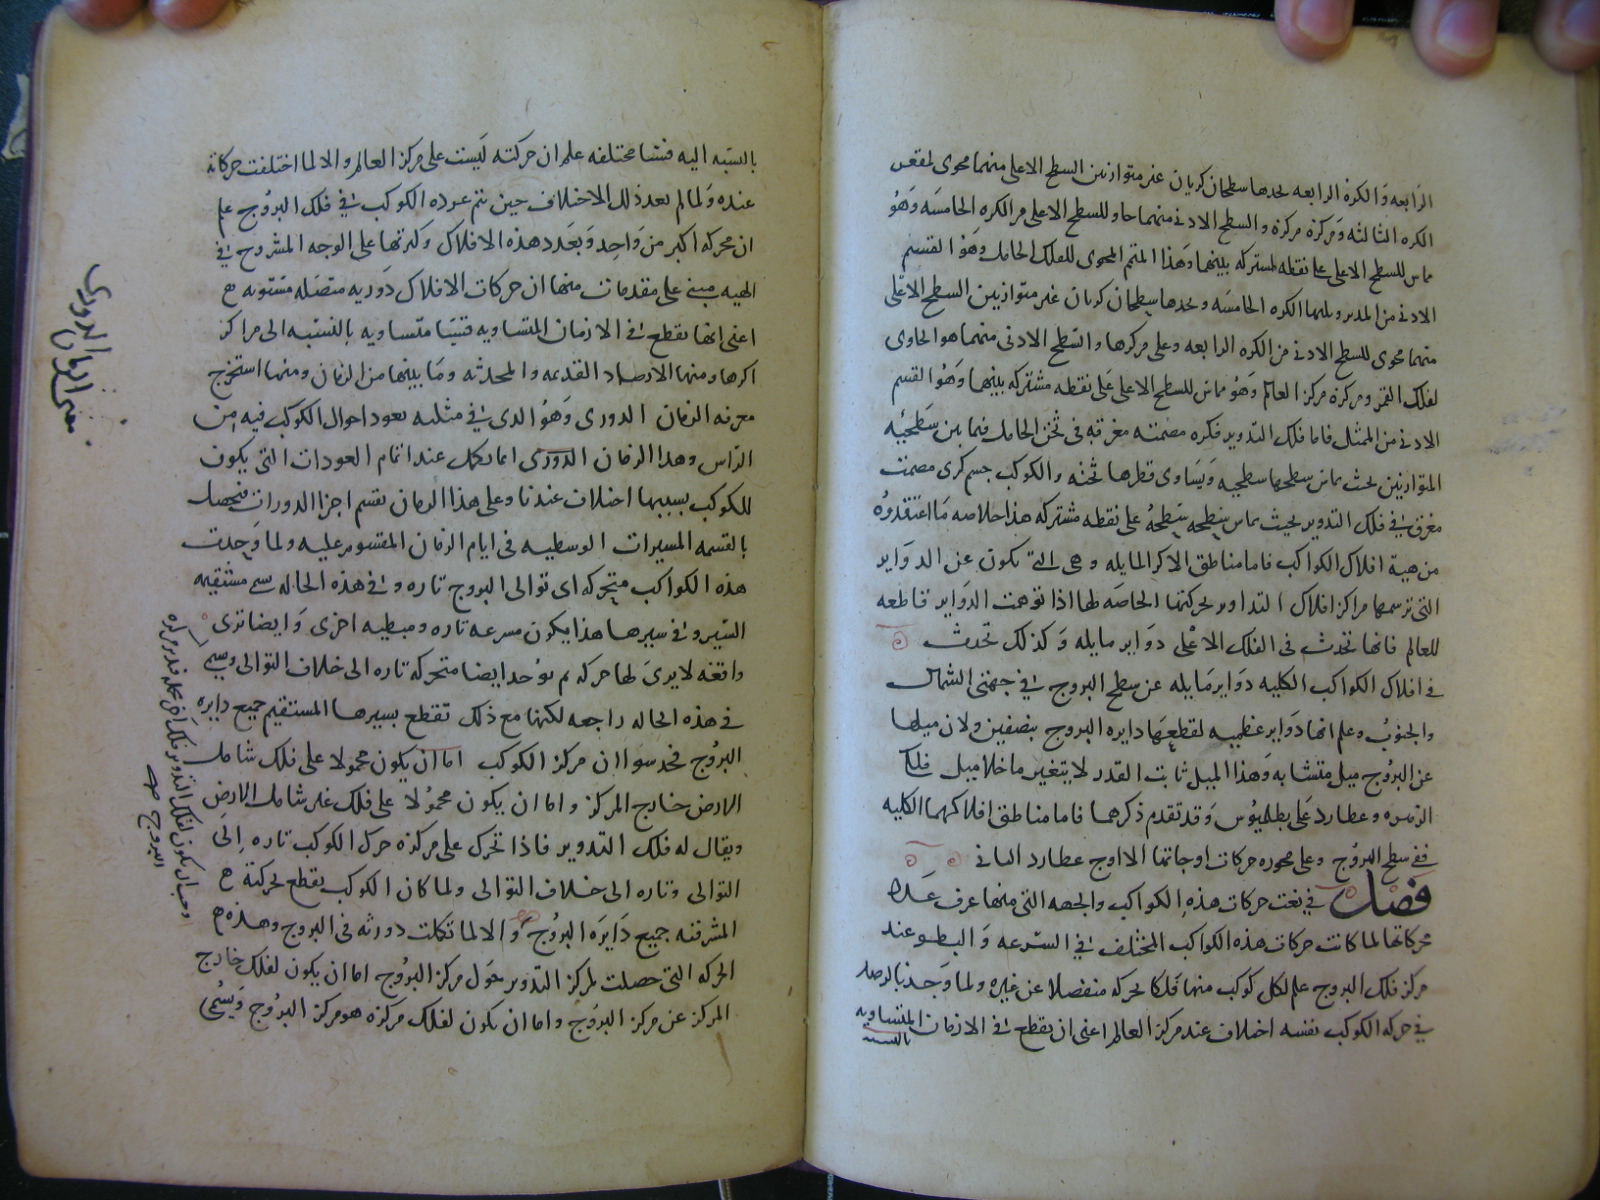 الرابعه والكرة الرابعه يحدها سطحان كريان غير متوازيين السطح الاعلى منهما محوى لمقعر
الكره الثالثه ومركزة مركزة والسطح الادنى منهما حاو للسطح الاعلى من الكره الخامسه وهو
مماس للسطح الاعلى على نقطه مشتركه بينهما وهذا المتمم المحوى للفلك الحامل وهو القسم
الادنى من المدير ويليها الكره الخامسه ويحدها سطحان كريان غير متوازيين السطح الاعلى
منهما محوى للسطح الادنى من الكره الرابعه وعلى مركزها والسطح الادنى منهما هو الحاوى
لفلك القمر ومركزة مركز العالم وهو مماس للسطح الاعلى على نقطه مشتركه بينهما وهو القسم
الادنى من الممثل فاما فلك التدوير فكره مصمته مغرقه فى ثخن الحامل فيما بين سطحيه
المتوازيين بحيث يماس سطحها سطحيه ويساوى قطرها ثخنه والكوكب جسم كرى مصمت
مغرق فى فلك التدوير بحيث يماس سطحه سطحه على نقطه مشتركه هذا خلاصه ما اعتقدوه
من هية افلاك الكواكب فاما مناطق الاكر المايله وهى التى تكون عن الدواير
التى ترسمها مراكز افلاك التداوير بحركتها الخاصه لها اذا توهمت الدواير قاطعه
للعالم فانها تحدث فى الفلك الاعلى دواير مايله وكذلك تحدث
فى افلاك الكواكب الكليه دواير مايله عن سطح البروج فى جهتى الشمال
والجنوب وعلم انها دواير عظيمه لقطعها دايره البروج بنصفين ولان ميلها
عن البروج ميل متشابه وهذا الميل ثابت القدر لا يتغير ما خلا ميل فلك
الزهره وعطارد على بطلميوس وقد تقدم ذكرهما فاما مناطق افلاكهما الكليه
ففى سطح البروج وعلى محوره حركات اوجاتها الا اوج عطارد الثانى
فصل فى نعت حركات هذه الكواكب والجهه التى منها عرف عدد
محركاتها لما كانت حركات هذه الكواكب المختلف فى السرعه والبطو عند
مركز فلك البروج علم لكل كوكب منها فلكا يحركه منفصلا عن غيره ولما وجد بالرصد
فى حركه الكوكب نفسه اختلاف عند مركز العالم اعنى ان يقطع فى الازمان المتساويه
بالنسبه
بالنسبه اليه قسيا مختلفه علم ان حركته ليست على مركز العالم والا لما اختلفت حركاته
عنده ولما لم يعد ذلك الاختلاف حين تتم عوده الكوكب فى فلك البروج علم
ان محركه اكبر من واحد وبعدد هذه الافلاك وكثرتها على الوجه المشروح فى
الهيه مبنى على مقدمات منها ان حركات الافلاك دوريه متصله مستويه
اعنى انها تقطع فى الازمان المتساويه قسيا متساويه بالنسبه الى مراكز
اكرها ومنها الارصاد القديمه والمحدثه وما بينها من الزمان ومنها استخرج
معرفه الزمان الدورى وهو الذى فى مثله يعود احوال الكوكب فيه من
الراس وهذا الزمان الدورى انما يكمل عند اتمام العودات التى يكون
للكوكب بسببها اختلاف عندنا وعلى هذا الزمان يقسم اجزا الدورات فيحصل
بالقسمه المسيرات الوسطيه فى ايام الزمان المقسوم عليه ولما وجدت
هذه الكواكب متحركه اى توالى البروج تاره وفى هذه الحاله سمى مستقيمه
السير وفى سيرها هذا يكون مسرعه تاره ومبطيه اخرى وايضا ترى
واقفه لا يرى لها حركه ثم توجد ايضا متحركه تاره الى خلاف التوالى وسمى
فى هذه الحاله راجعه لكنها مع ذلك تقطع بسيرها المستقيم جميع دايره
البروج فحدسوا ان مركز الكوكب اما ان يكون محمولا على فلك شامل
الارض خارج المركز واما ان يكون محمولا على فلك غير شامل الارض
ويقال له فلك التدوير فاذا تحرك على مركزه حرك الكوكب تاره الى
التوالى وتاره الى خلاف التوالى ولما كان الكوكب يقطع بحركته
المشرقيه جميع دايره البروج والا لما تكملت دورته فى البروج وهذه
الحركه التى حصلت لمركز التدوير حول مركز البروج اما ان يكون لفلك خارج
المركز عن مركز البروج واما ان يكون لفلك مركزه هو مركز البروج ويسمى
معنى الزمان الدورى
وجب ان يكون لفلك التدوير فلك اخر يحمله فيدير مركزه
البروج صح